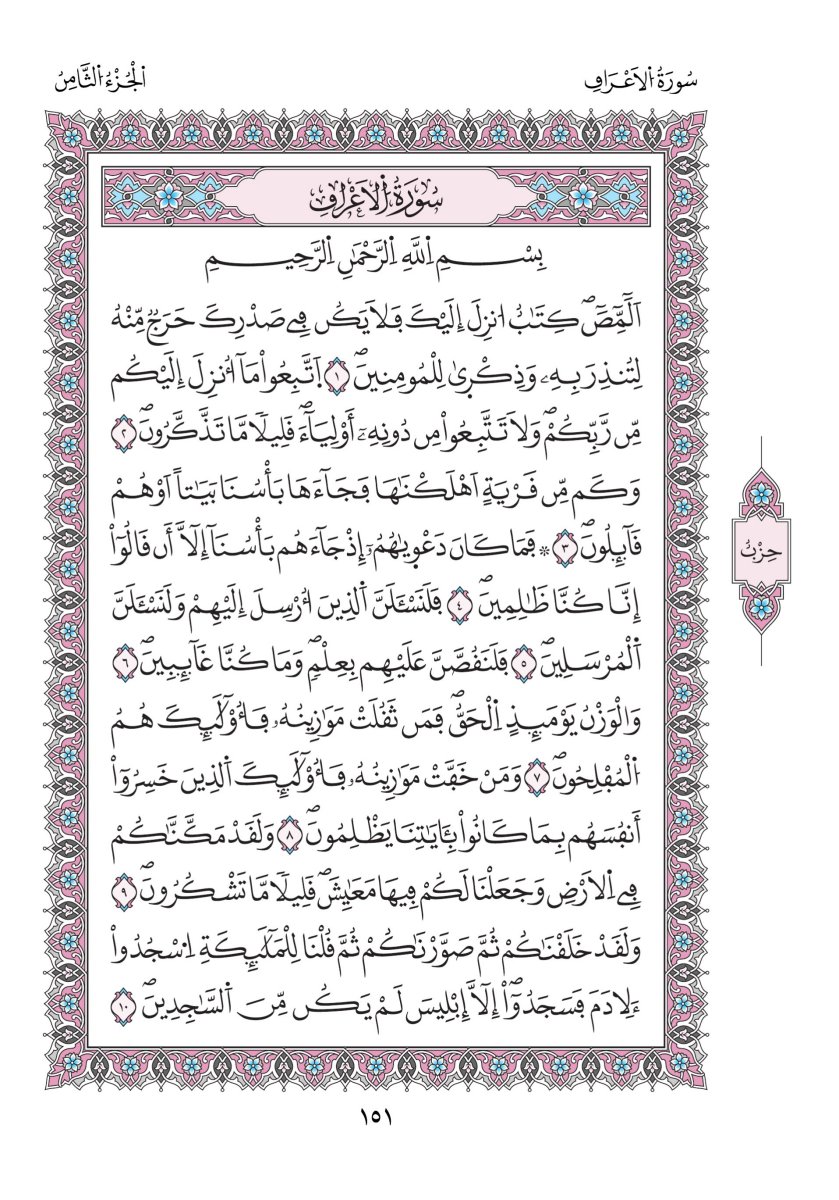 سُورَةُ اُ۬لَاعْرَافِ
اَ۬لْجُزْءُ اُ۬لثَّامِنُ
سُورَةُ اُ۬لَاعْرَافِ
بِسْمِ اِ۬للَّهِ اِ۬لرَّحْمَٰنِ اِ۬لرَّحِيمِ
أَلَٓمِّٓصَٓۖ كِتَٰبٌ ا۟نزِلَ إِلَيْكَ فَلَا يَكُن فِے صَدْرِكَ حَرَجٌ مِّنْهُ
لِتُنذِرَ بِهِۦ وَذِكْر۪ىٰ لِلْمُومِنِينَۖ ١ اَ۪تَّبِعُواْ مَآ أُنزِلَ إِلَيْكُم
مِّن رَّبِّكُمْۖ وَلَا تَتَّبِعُواْ مِن دُونِهِۦٓ أَوْلِيَآءَۖ قَلِيلٗا مَّا تَذَّكَّرُونَۖ ٢
وَكَم مِّن قَرْيَةٍ اَهْلَكْنَٰهَا فَجَآءَهَا بَأْسُنَا بَيَٰتاً اَوْ هُمْ
قَآئِلُونَۖ ٣ ۞ فَمَا كَانَ دَعْو۪يٰهُمُۥٓ إِذْ جَآءَهُم بَأْسُنَآ إِلَّآ أَن قَالُوٓاْ
إِنَّا كُنَّا ظَٰلِمِينَۖ ٤ فَلَنَسْـَٔلَنَّ اَ۬لذِينَ أُرْسِلَ إِلَيْهِمْ وَلَنَسْـَٔلَنَّ
اَ۬لْمُرْسَلِينَۖ ٥ فَلَنَقُصَّنَّ عَلَيْهِم بِعِلْمٖۖ وَمَا كُنَّا غَآئِبِينَۖ ٦
وَالْوَزْنُ يَوْمَئِذٍ اِ۬لْحَقُّۖ فَمَن ثَقُلَتْ مَوَٰزِينُهُۥ فَأُوْلَٰٓئِكَ هُمُ
اُ۬لْمُفْلِحُونَۖ ٧ وَمَنْ خَفَّتْ مَوَٰزِينُهُۥ فَأُوْلَٰٓئِكَ اَ۬لذِينَ خَسِرُوٓاْ
أَنفُسَهُم بِمَا كَانُواْ بِـَٔايَٰتِنَا يَظْلِمُونَۖ ٨ وَلَقَدْ مَكَّنَّٰكُمْ
فِے اِ۬لَارْضِ وَجَعَلْنَا لَكُمْ فِيهَا مَعَٰيِشَۖ قَلِيلٗا مَّا تَشْكُرُونَۖ ٩
وَلَقَدْ خَلَقْنَٰكُمْ ثُمَّ صَوَّرْنَٰكُمْ ثُمَّ قُلْنَا لِلْمَلَٰٓئِكَةِ اِ۟سْجُدُواْ
ءِلَادَمَ فَسَجَدُوٓاْۖ إِلَّآ إِبْلِيسَ لَمْ يَكُن مِّنَ اَ۬لسَّٰجِدِينَۖ ١٠
حِزْبٌ
١٥١